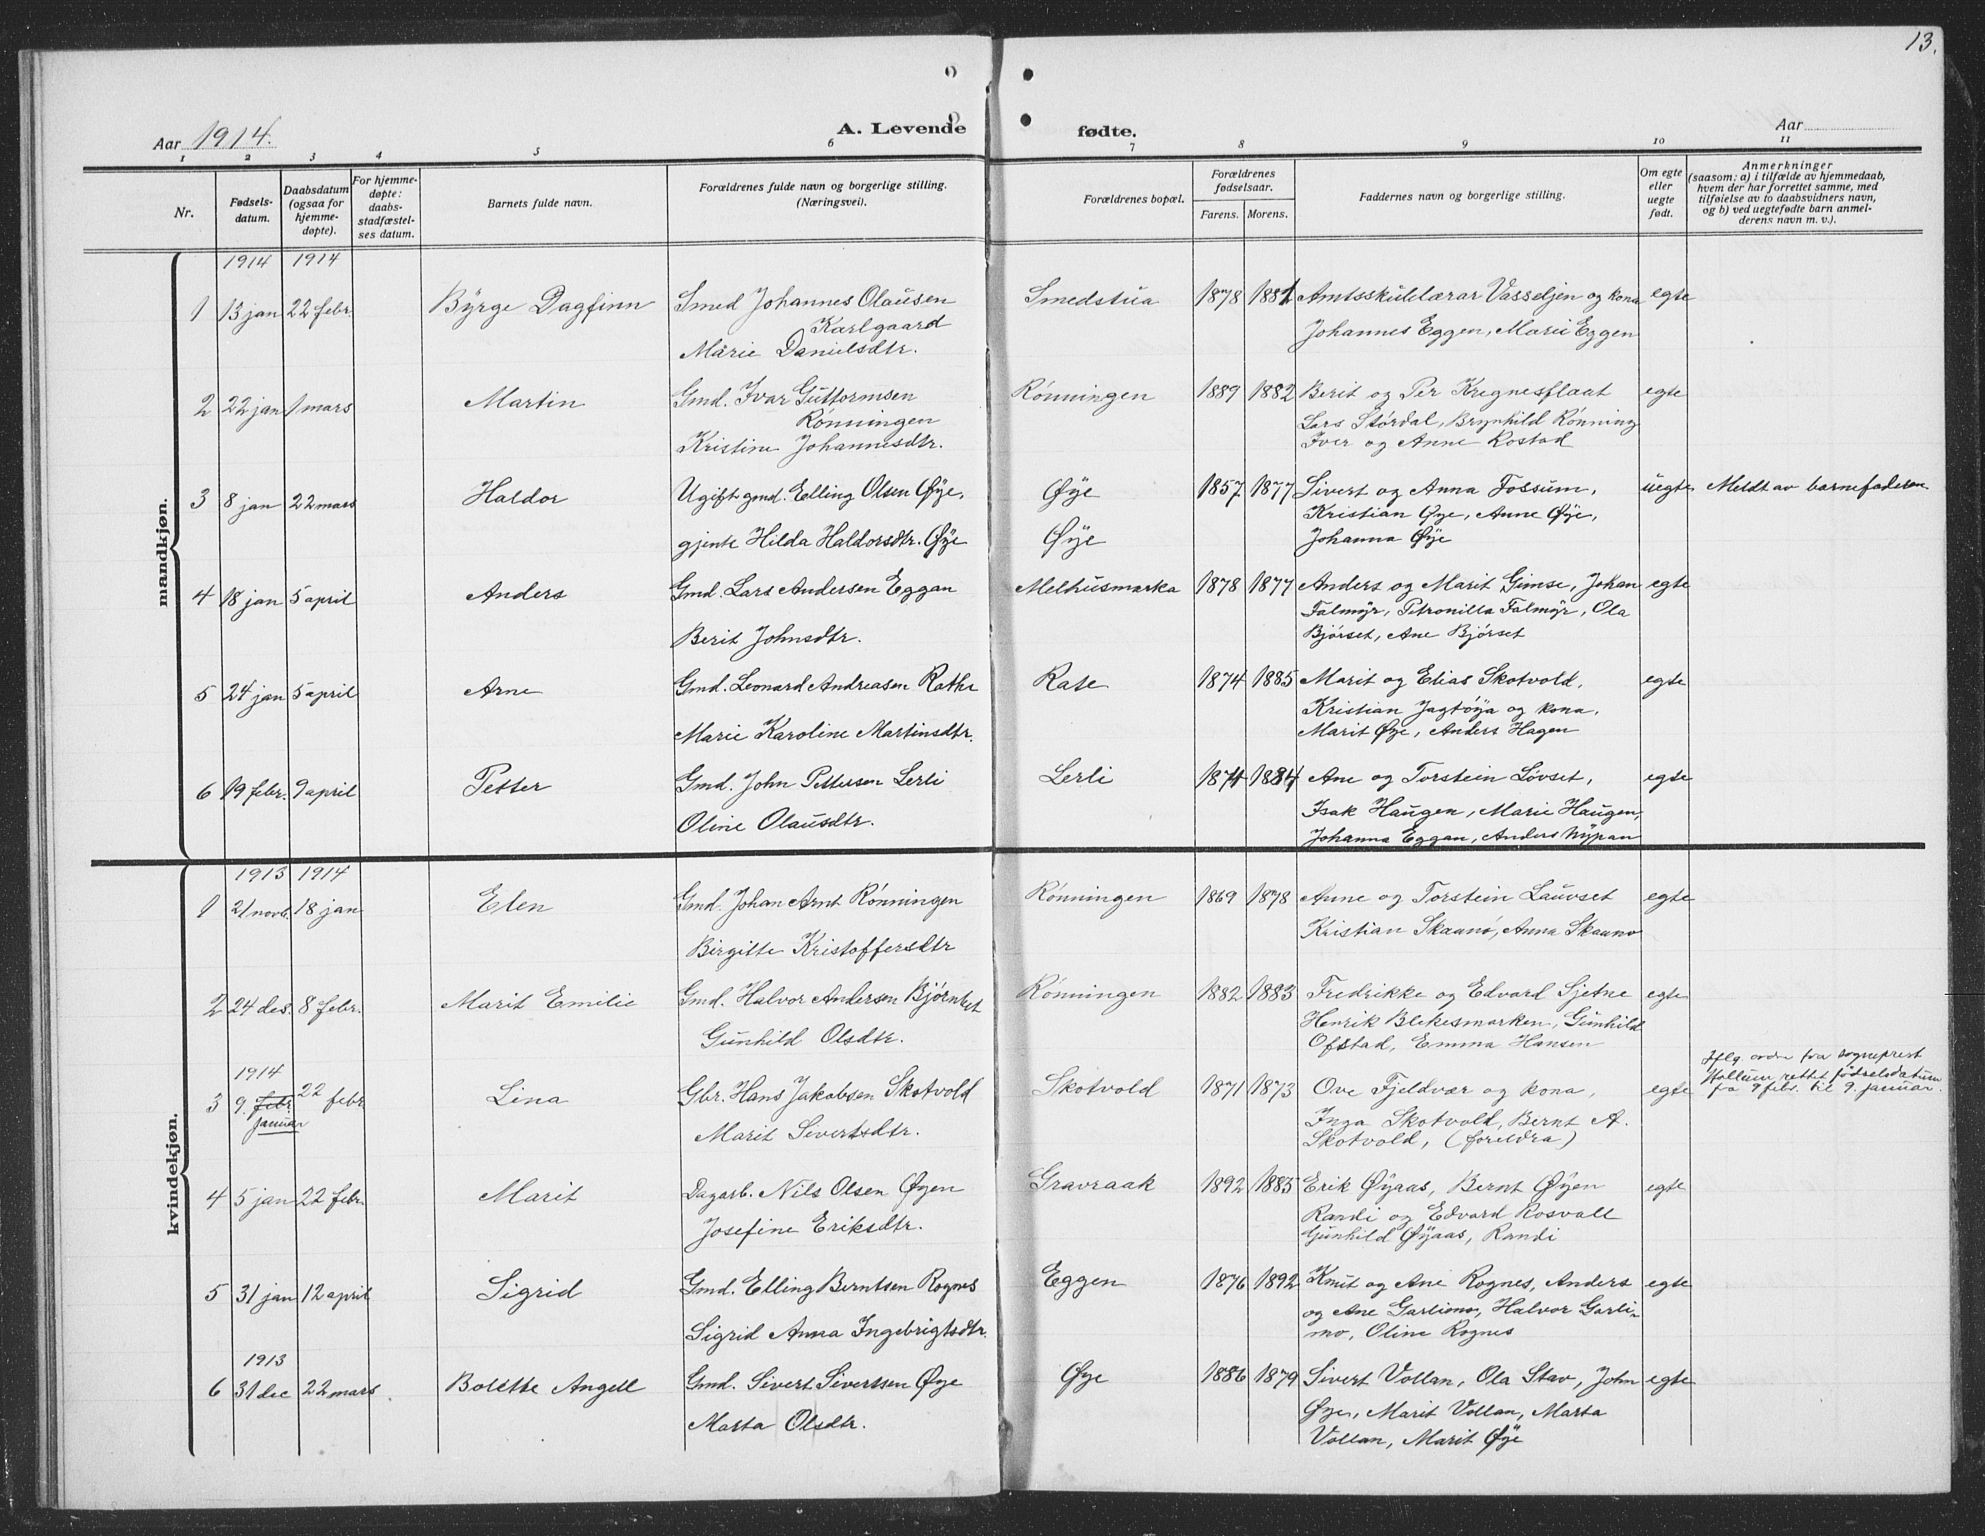 13.
Aar 1914.
A. Levende
fødte.
Aar
1 2 3 4 5 6 7 8 9 10 11
Nr.
Fødsels-
datum.
Daabsdatum
(ogsaa for
hjemme-
døpte).
For hjemme-
døpte:
daabs-
stadfæstel-
ses datum.
Barnets fulde navn.
Forældrenes fulde navn og borgerlige stilling.
(Næringsvei).
Forældrenes bopæl.
Forældrenes
fødselsaar.
Farens. Morens.
Faddernes navn og borgerlige stilling.
Om egte
eller
uegte
født.
Anmerkninger
(saasom: a) i tilfælde av hjemmedaab,
hvem der har forrettet samme, med
tilføielse av to daabsvidners navn,
og b) ved uegtefødte barn anmel-
derens navn m. v.).
mandkjøn.
1914 1914
1 13 jan 22 febr Byrge Dagfinn Smed Johannes Olausen Smedstua 1878 1881 Amtsskulelærar Vasseljen og kona egte
Karlgaard Johannes Eggen, Marie Eggen
Marie Danielsdtr.
2 22 jan 1 mars Martin Gmd. Ivar Guttormsen Rønningen 1889 1882 Berit og Per Kregnesflaat egte
Rønningen Lars Størdal, Brynhild Rønning
Kristine Johannesdtr. Iver og Anne Rostad
3 8 jan 22 mars Haldor Ugift gmd. Elling Olsen Øye, Øye 1857 1877 Sivert og Anna Fossum, uegte Meldt av barnefaderen
Kristian Øye, Anne Øye,
gjente Hilda Haldorsdtr. Øye Øye Johanna Øye
4 18 jan 5 april Anders Gmd. Lars Andersen Eggan Melhusmarka 1878 1877 Anders og Marit Gimse, Johan egte
Falmyr, Petronilla Falmyr, Ola
Berit Johnsdtr. Bjørset, Ane Bjørset
5 24 jan 5 april Arne Gmd. Leonard Andreasen Rathe Rate 1874 1885 Marit og Elias Skotvold, egte
Kristian Jagtøya og kona,
Marie Karoline Martinsdtr. Marit Øye, Anders Hagen
6 19 febr. 9 april Petter Gmd. John Pettersen Lerli Lerli 1874 1884 Ane og Torstein Løvset, egte
Isak Haugen, Marie Haugen,
Oline Olausdtr. Johanna Eggan, Anders Nypan
kvindekjøn.
1913 1914
1 21 novb. 18 jan Elen Gmd. Johan Arnt Rønningen Rønningen 1869 1878 Anne og Torstein Lauvset egte
Birgitte Kristoffersdtr Kristian Skaunø, Anna Skauno
2 24 des. 8 febr. Marit Emilie Gmd. Halvor Andersen Bjørnbet Rønningen 1882 1883 Fredrikke og Edvard Sjetne egte
Henrik Blekesmarken, Gunhild
Gunhild Olsdtr. Ofstad, Emma Hansen
1914
3 9. febr januar 22 febr Lina Gbr. Hans Jakobsen Skotvold Skotvold 1871 1873 Ove Fjeldvær og kona, egte
Iflg ordre fra sogneprest
Hollum rettet fødselsdatum
fra 9 febr. til 9. januar.
Marit Sivertsdtr. Inga Skotvold, Bernt A.
Skotvold, (foreldra)
4 5 jan 22 febr. Marit Dagarb. Nils Olsen Øyen Gravraak 1892 1885 Erik Øyaas, Bernt Øyen egte
Josefine Eriksdtr. Randi og Edvard Rosvall
Gunhild Øyaas, Randi
5 31 jan 12 april Sigrid Gmd. Elling Berntsen Rognes Eggen 1876 1892 Knut og Ane Rognes, Anders egte
og Ane Garlimo, Halvor Garli-
Sigrid Anna Ingebrigtsdtr. mo, Oline Rognes
1913
6 31 dec 22 mars. Bolette Angell Gmd. Sivert Sivertsen Øye Øye 1886 1879 Sivert Vollan, Ola Stav, John egte
Marta Olsdtr. Øye, Marit Vollan, Marta
Vollan, Marit Øye